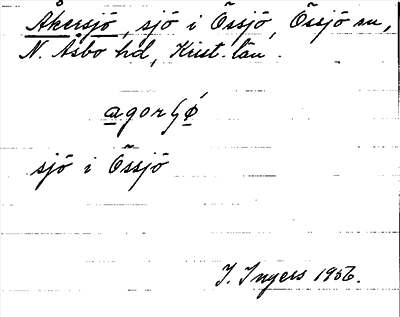 Åkersjö, sjö i Össjö, Össjö sn,
N. Åsbo hd, Krist. län.
sjö i Össjö
I. Ingers 1956.